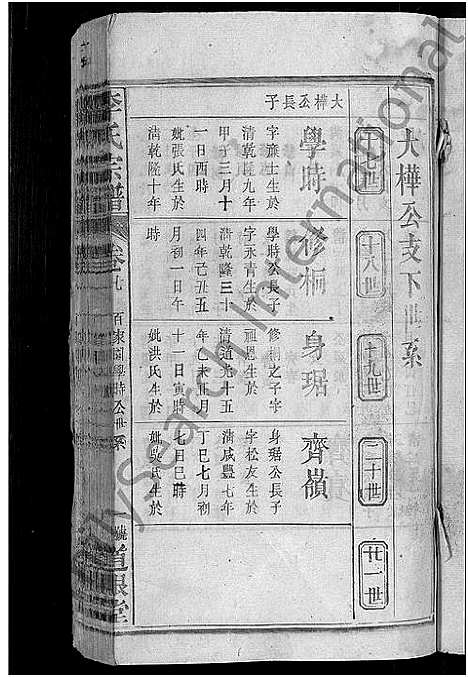 大樺公支下世系
十七世
十八世
十九世
二十世
廿一世
大樺公長子
學時
字廉士生於
清乾隆九年
甲子三月十
一日酉時
妣張氏生於
清乾隆十年
修桐
學時公長子
字永青生於
清乾隆三十
四年己丑五
月初一日午
時
身琚
修桐之子字
祖恩生於
清道光十五
年乙未正月
十一日寅時
妣洪氏生於
齊嶺
身琚公長子
字松友生於
清咸豐七年
丁巳七月初
七日巳時
妣吳氏生於
李氏宗譜
卷九
百家園學時公世系
道根堂
FamilySearch International